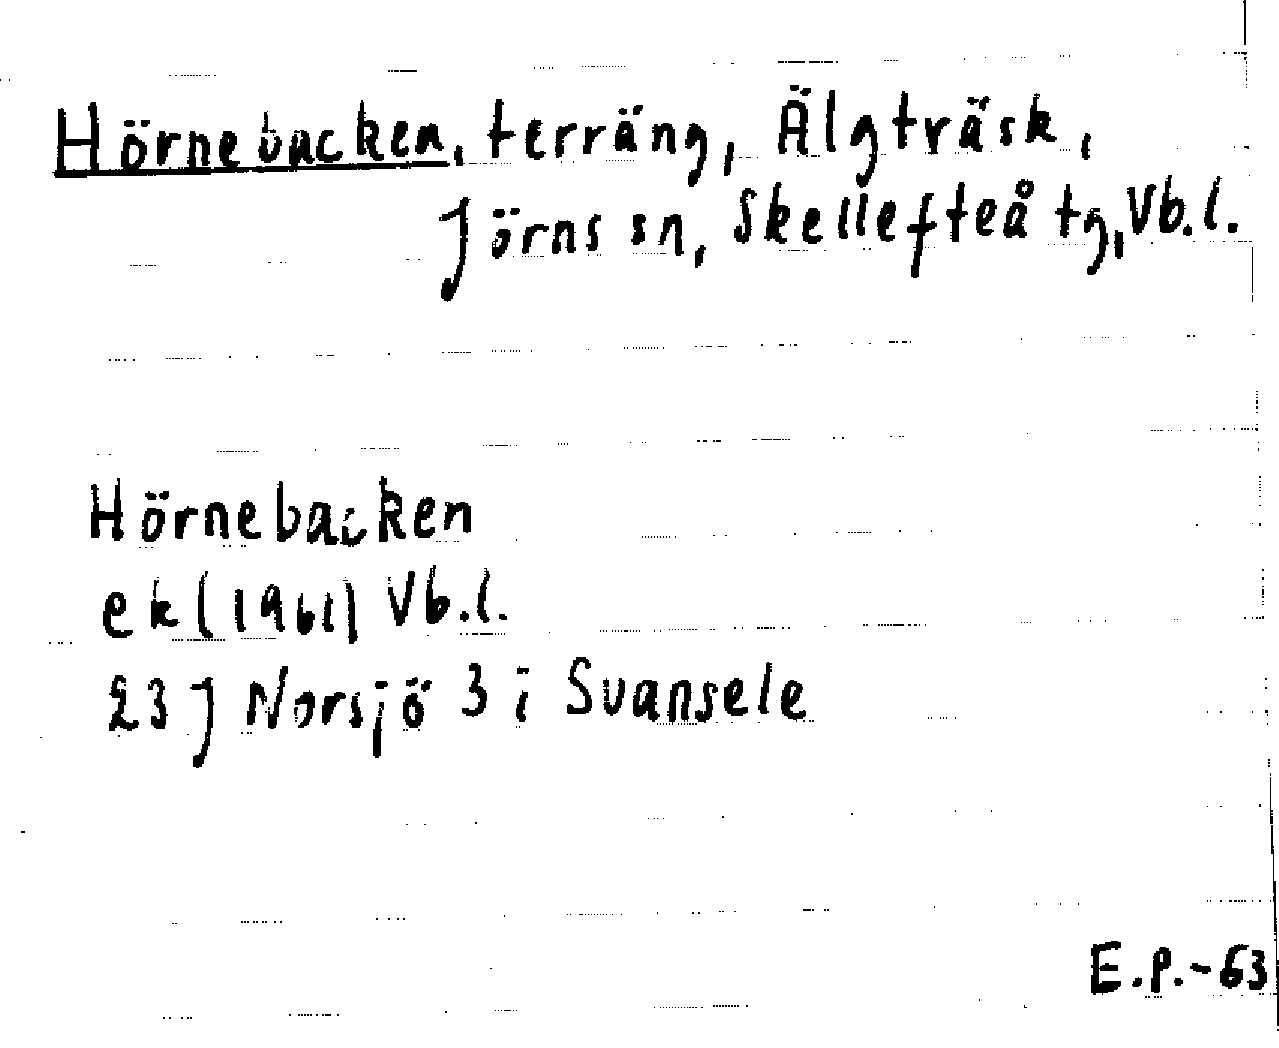 Hörnebacken, terräng, Älgträsk,
Jörns sn, Skellefteå tg, Vb.l.
Hörnebacken
ek (1961) Vb.l.
23 J Norsjö 3 i Svansele
E.P.-63